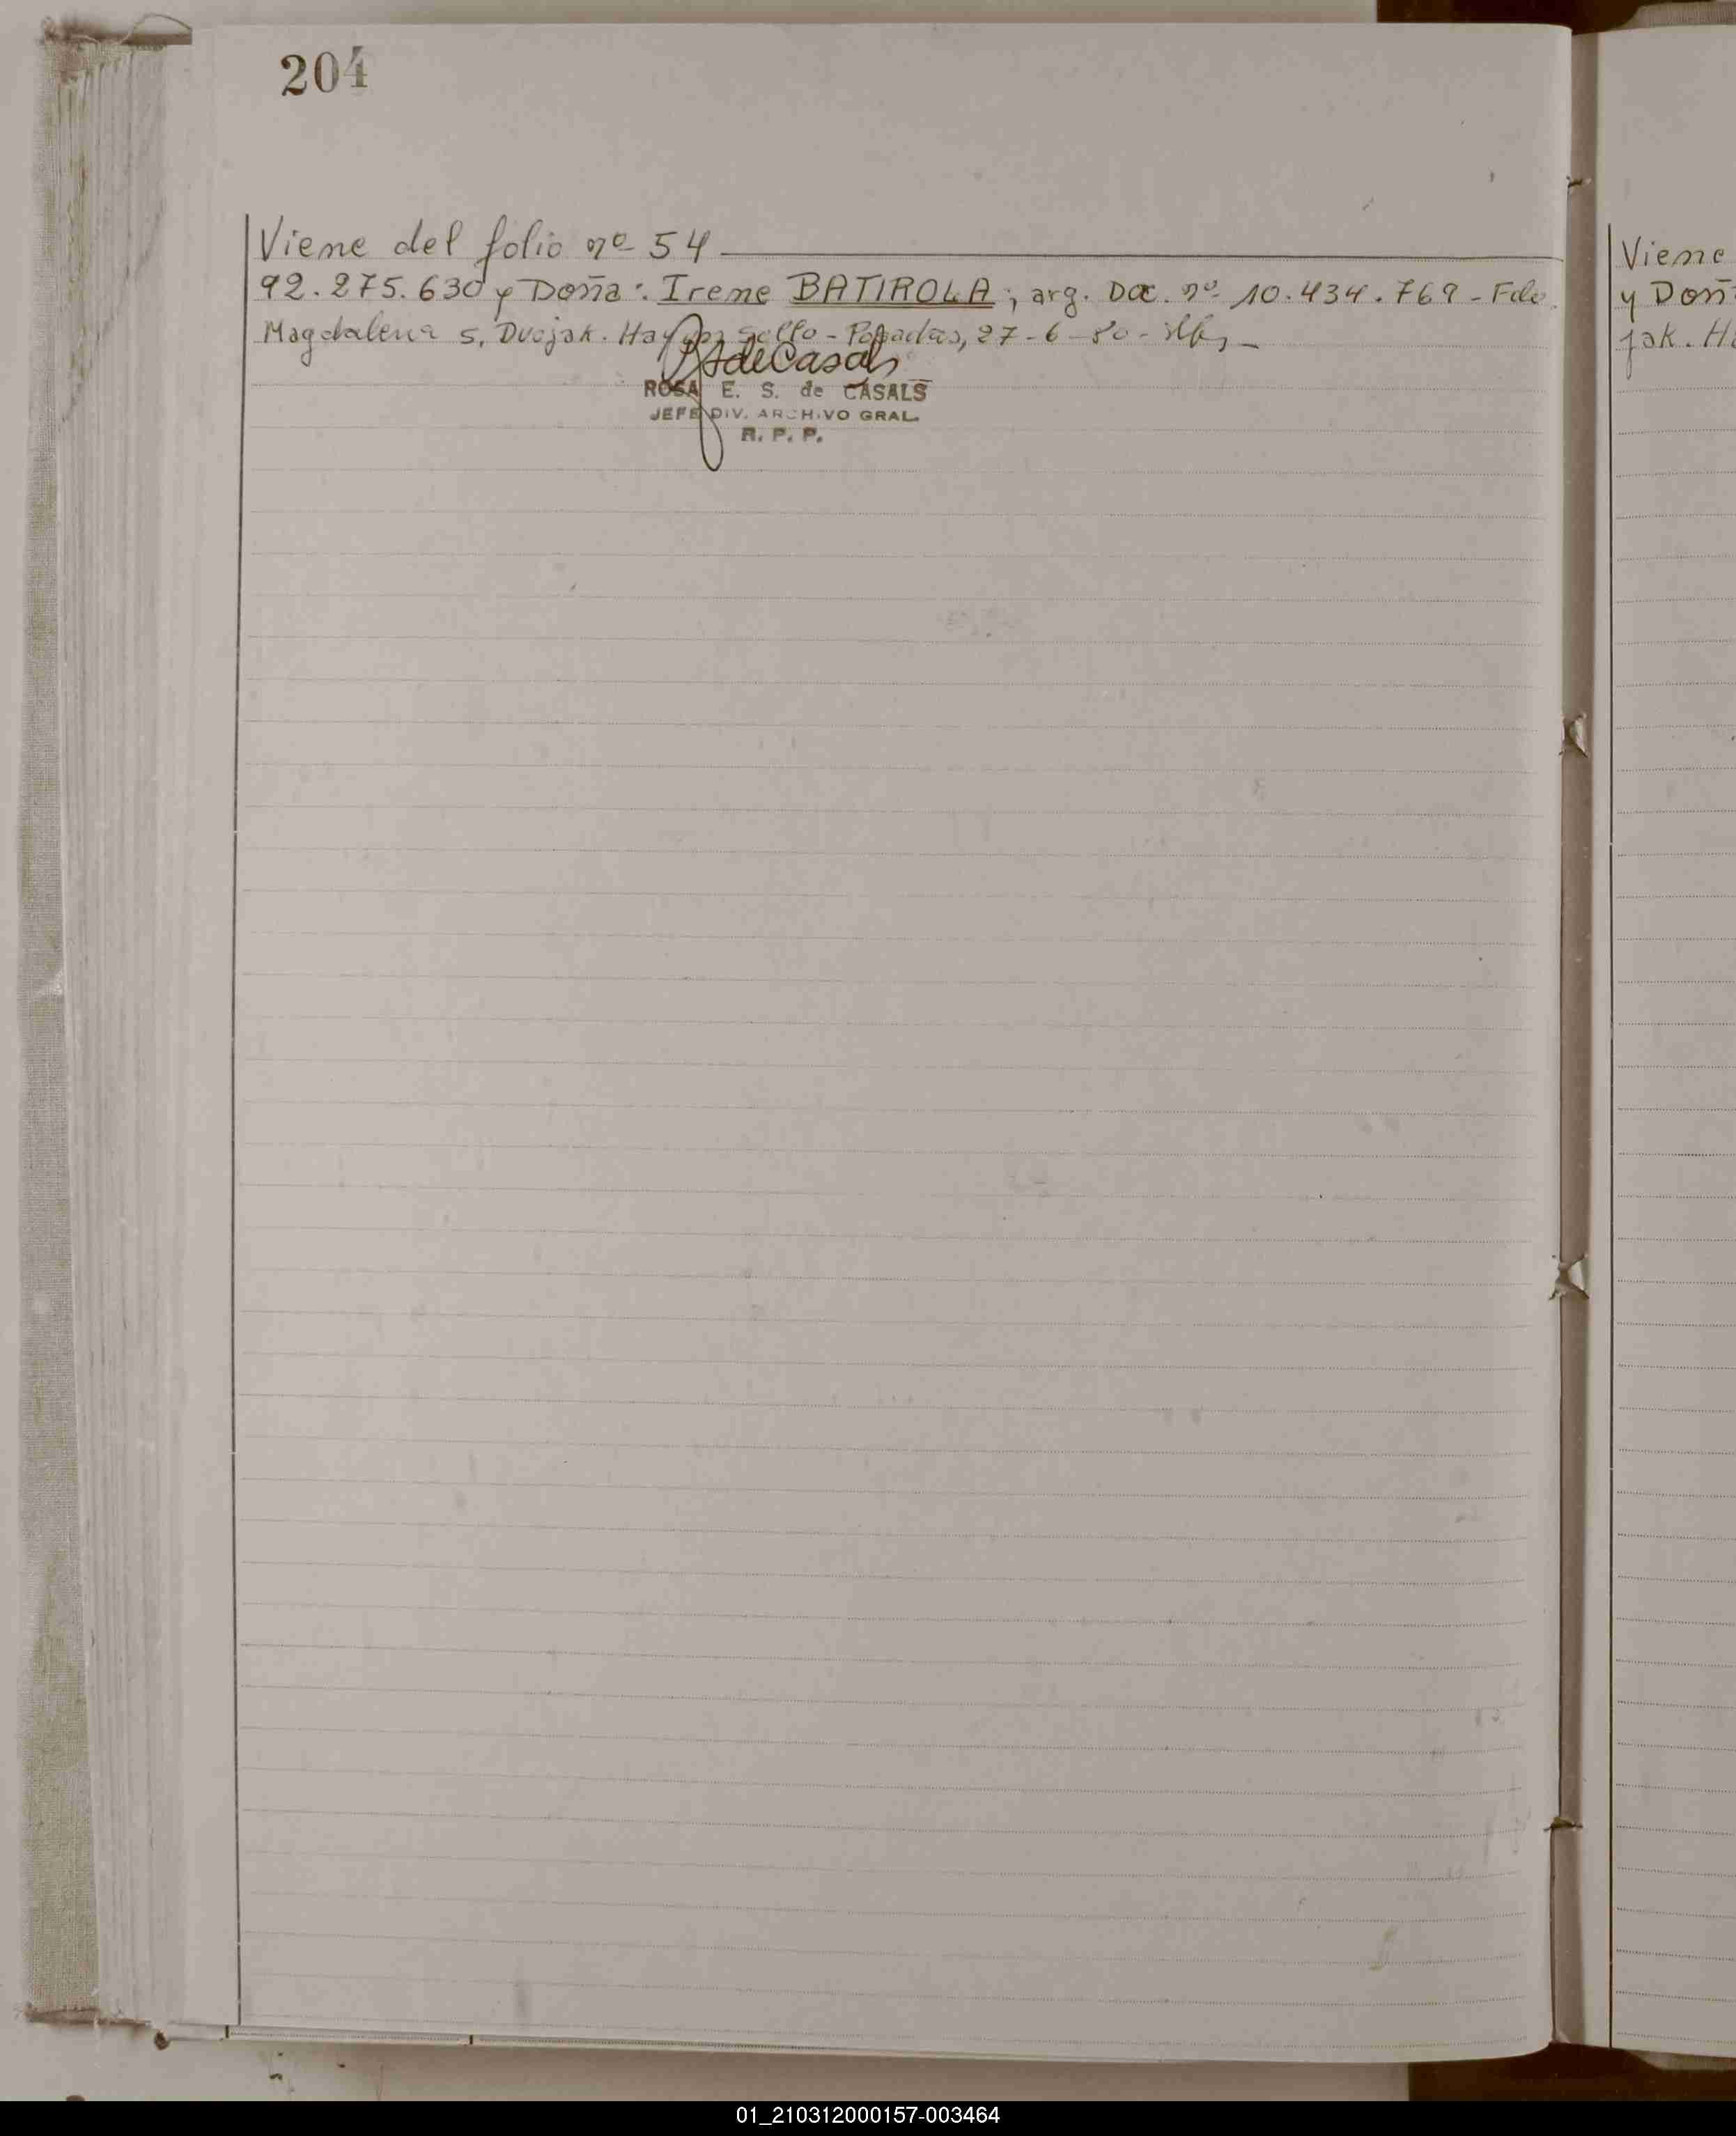 204
Viene del folio nº 54
92.275.630 y Doña: Irene BATIROLA; arg. Doc. nº 10.434.769 - Fdo.
Magdalena S. Dvojak. Hay un sello - Posadas, 27-6-80-
SdeCasals
ROSA E. S. de CASALS
JEFE DIV. ARCHIVO GRAL.
R. P. P.
Viene
y Doñ
jak. H
01_210312000157-003464